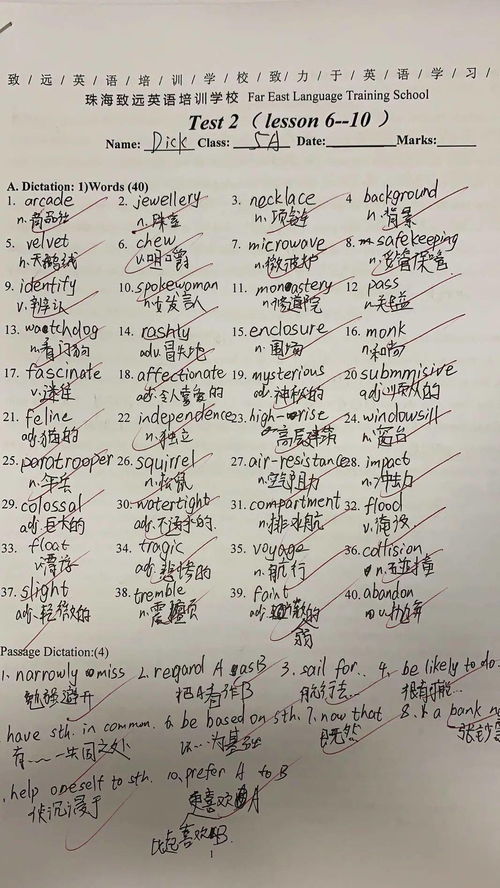 致/远/英/语/培/训/学/校/致/力/于/英/语/学/习/
珠海致远英语培训学校 Far East Language Training School
Test 2（ lesson 6--10 ）
Name: Dick Class: 5A Date: Marks:
A. Dictation: 1)Words (40)
1. arcade 2. jewellery 3. necklace 4 background
n. n.珠宝 n.项链 n.背景
5. velvet 6. chew 7. microwave 8. safekeeping
n.天鹅绒 v.咀嚼 n.微波炉 n.妥管保管
9. identify 10. spokewoman 11. monastery 12. pass
v.辨认 n.女发言人 n.修道院 n.关隘
13. watchdog 14. rashly 15. enclosure 16. monk
n.看门狗 adv.冒失地 n.围场 n.和尚
17. fascinate 18. affectionate 19. mysterious 20 submmisive
v.迷住 adj. adj.神秘的 adj.顺从的
21. feline 22 independence 23. high-rise 24. windowsill
adj.猫的 n.独立 高层建筑 n.窗台
25. paratrooper 26. squirrel 27. air-resistance 28. impact
n.伞兵 n.松鼠 n.空气阻力 n.冲击力
29. colossal 30. watertight 31. compartment 32. flood
adj.巨大的 adj.不透水的 n. v.淹没
33. float 34. tragic 35. voyage 36. collision
v.漂浮 adj.悲惨的 n.航行 n.碰撞
37. slight 38. tremble 39. faint 40. abandon
adj.轻微的 n.震颤 adj. 的
弱
Passage Dictation:(4)
1. narrowly miss 2. regard A as B 3. sail for.. 4. be likely to do.
勉强避开 把A看作B 很有可能...
have sth. in common. 6. be based on sth. 7. now that 8. a bank
有……共同之处 以…为基础 既然
help oneself to sth. 10. prefer A to B
更喜欢A
比起喜欢B.
1